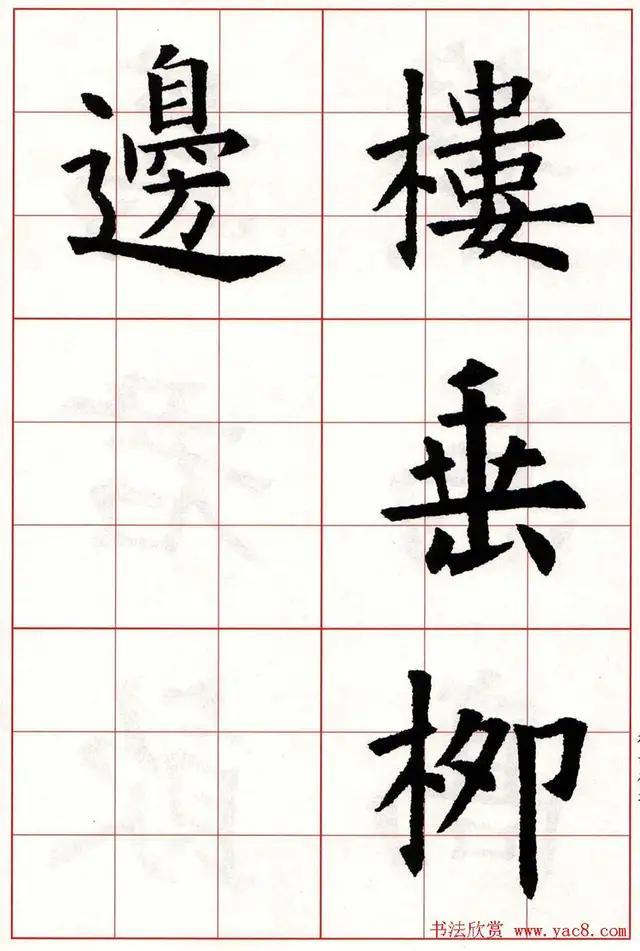 樓垂柳
邊
书法欣赏 www.yac8.com